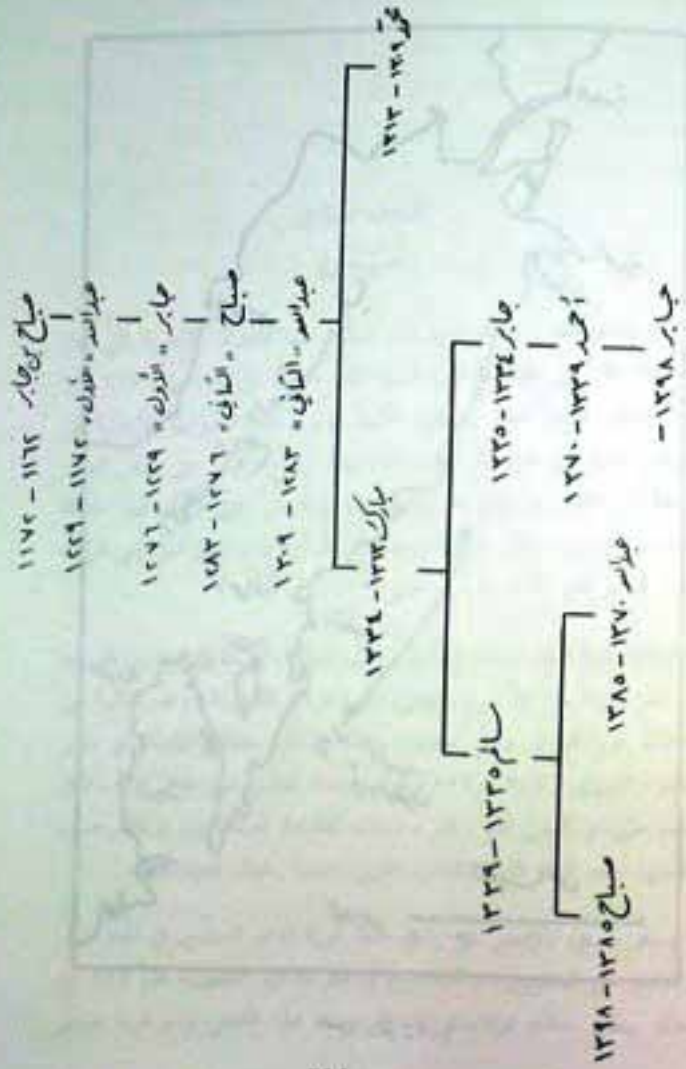 صباح بن جابر ١١٦٢ - ١١٧٢
عبدالله «الأول» ١١٧٢ - ١٢٢٩
جابر «الأول» ١٢٢٩ - ١٢٧٦
صباح «الثاني» ١٢٧٦ - ١٢٨٣
عبدالله «الثاني» ١٢٨٣ - ١٣٠٩
محمد ١٣٠٩ - ١٣١٣
مبارك ١٣١٣ - ١٣٣٤
جابر ١٣٣٤ - ١٣٣٥
سالم ١٣٣٥ - ١٣٣٩
أحمد ١٣٣٩ - ١٣٧٠
عبدالله ١٣٧٠ - ١٣٨٥
صباح ١٣٨٥ - ١٣٩٨
جابر ١٣٩٨ -